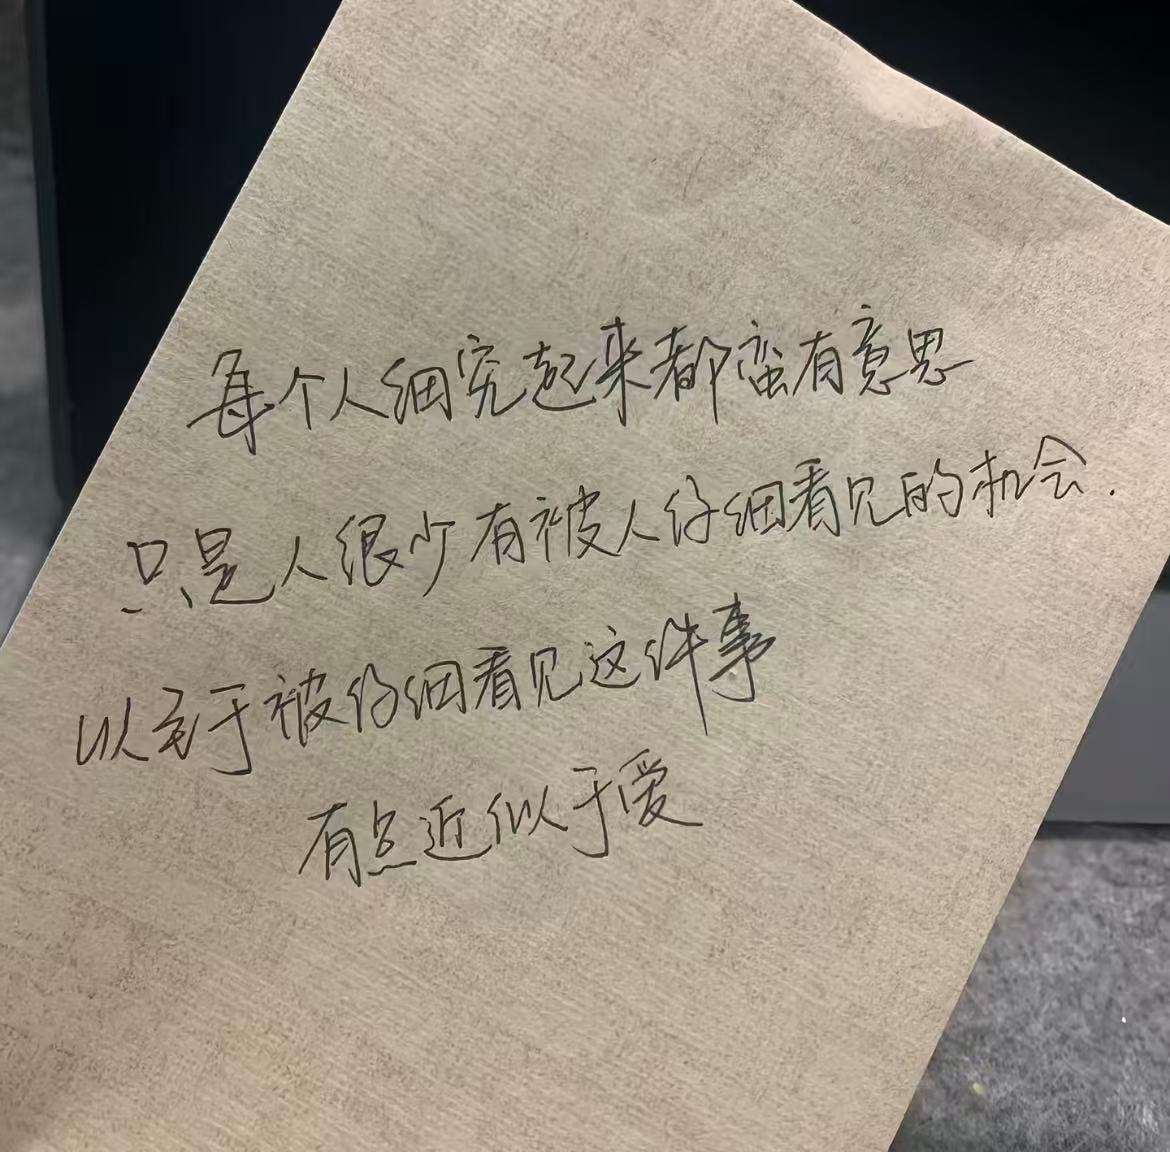 每个人细究起来都蛮有意思
只是人很少有被人仔细看见的机会.
以至于被仔细看见这件事
有点近似于爱